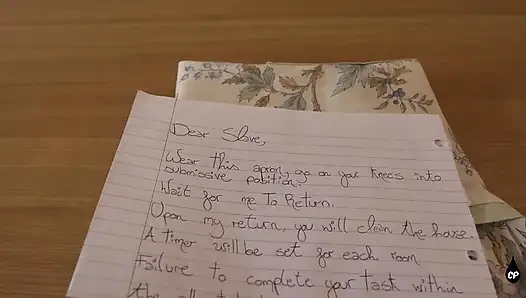 Dear Slave,
Wear this apron, go on your knees into
submissive position.
Wait for me to Return.
Upon my return, you will clean the house.
A timer will be set for each room
Failure to complete your task within
the
CP